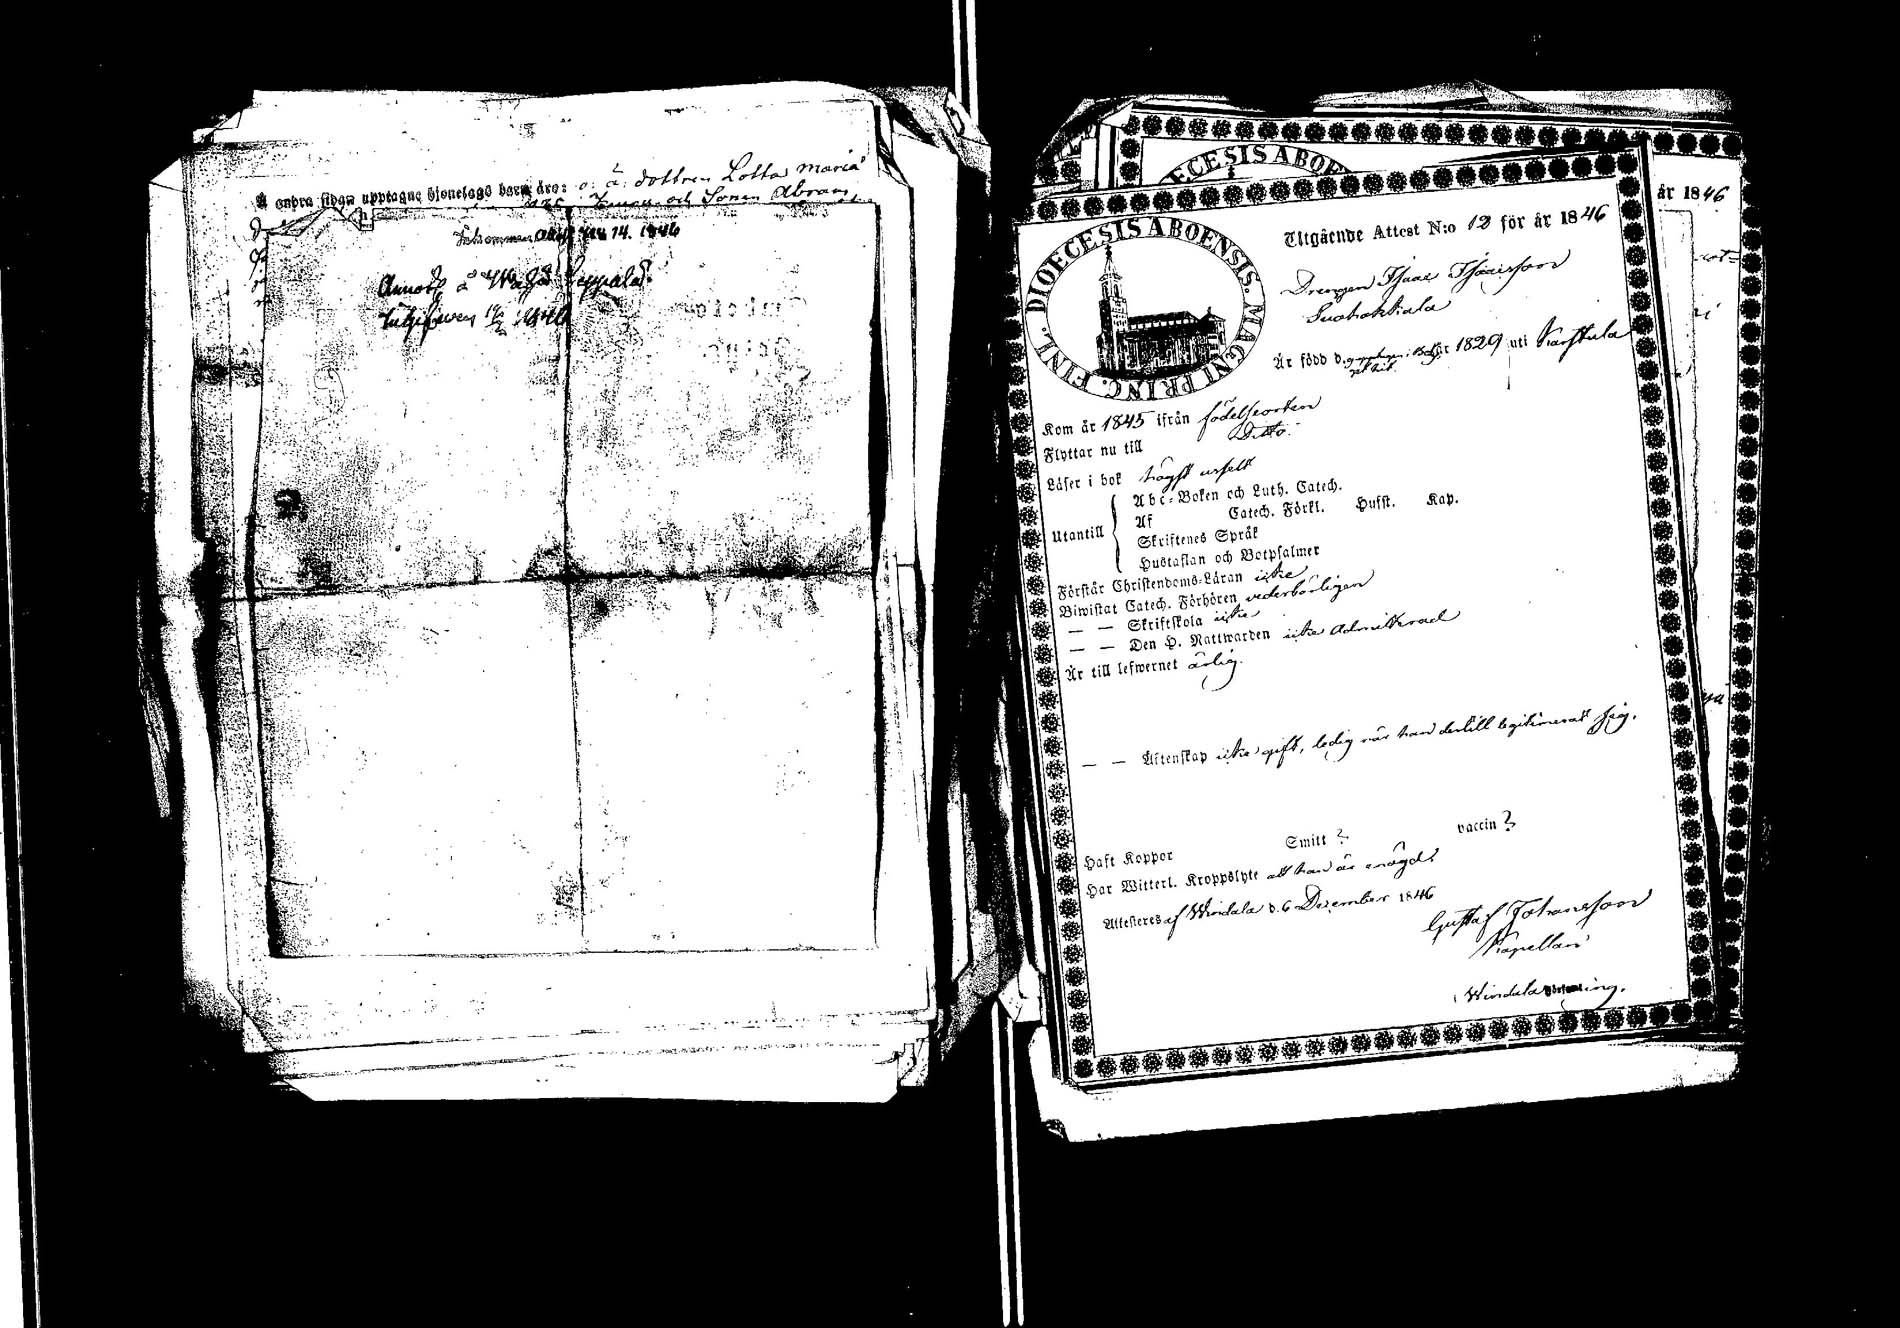 Å andra sidan upptagne hjonelags barn äro: o. ä. dottren Lotta Maria
och Sonen Abram
Inkommen 14. 1846
Annot. å
DIOECESIS ABOEN
år 1846
DIOECESIS ABOENSIS. MAGNI PRINC. FINL.
Utgående Attest N:o 12 för år 1846
Drengen Isaac Isaacsson
Är född d. år 1829 uti Karstula
Kom år 1845 ifrån födelseorten
Flyttar nu till Ditto.
Läser i bok högst uselt
Utantill
Abc-Boken och Luth. Catech.
Af Catech. Förkl. Hufst. Kap.
Skriftenes Språk
Hustaflan och Botpsalmer
Förstår Christendoms-Läran icke
Biwistat Catech. Förhören vederbörligen
— — Skriftskola icke
— — Den H. Nattwarden icke admitterad
Är till lefwernet ärlig.
— — Äktenskap icke gift, ledig när han dertill legitimerat sig.
Haft Koppor Smitt ? vaccin ?
Har Witterl. Kroppslyte att han är
Attesteres af Windala d. 6 December 1846
Gustaf Johansson
Kapellan
Windala